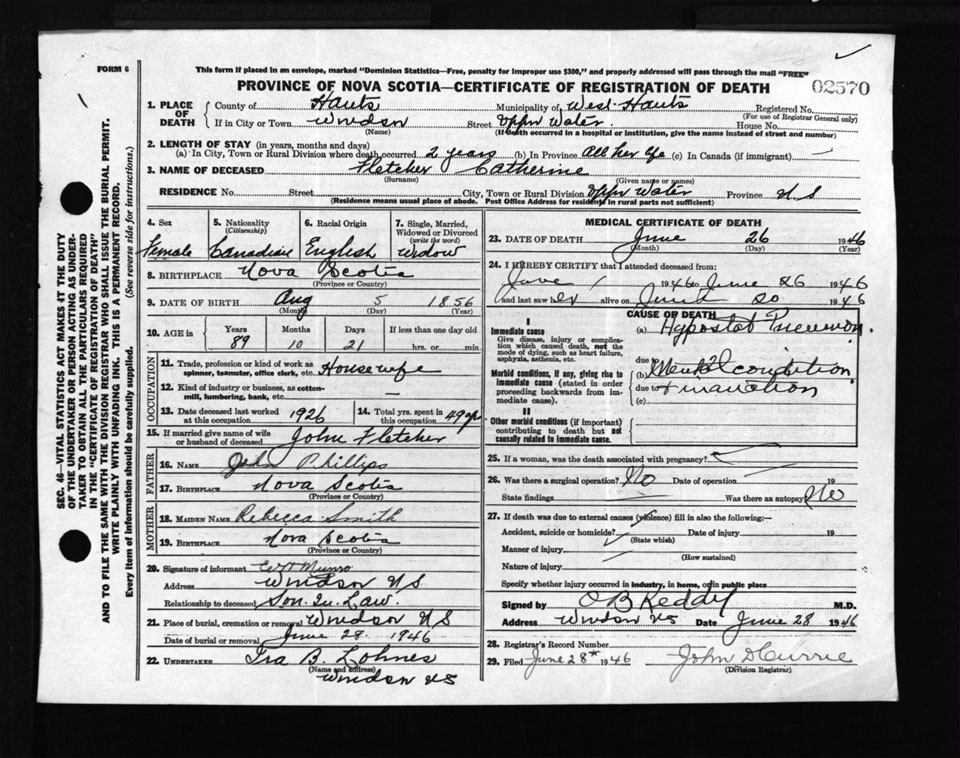 FORM 6
This form if placed in an envelope, marked "Dominion Statistics—Free, penalty for improper use $300," and properly addressed will pass through the mail "FREE"
PROVINCE OF NOVA SCOTIA—CERTIFICATE OF REGISTRATION OF DEATH
02570
SEC. 46—VITAL STATISTICS ACT MAKES IT THE DUTY
OF THE UNDERTAKER OR PERSON ACTING AS UNDER-
TAKER TO OBTAIN ALL THE PARTICULARS REQUIRED
IN THE "CERTIFICATE OF REGISTRATION OF DEATH"
AND TO FILE THE SAME WITH THE DIVISION REGISTRAR WHO SHALL ISSUE THE BURIAL PERMIT.
WRITE PLAINLY WITH UNFADING INK. THIS IS A PERMANENT RECORD.
Every item of information should be carefully supplied. (See reverse side for instructions.)
1. PLACE OF DEATH
County of Hants Municipality of West-Hants Registered No.
(For use of Registrar General only)
If in City or Town Windsor Street Uppr Water. House No.
(Name) (If death occurred in a hospital or institution, give the name instead of street and number)
2. LENGTH OF STAY (in years, months and days)
(a) In City, Town or Rural Division where death occurred 2 years (b) In Province All her life (c) In Canada (if immigrant) —
3. NAME OF DECEASED Fletcher Catherine
(Surname) (Given name or names)
RESIDENCE No. Street City, Town or Rural Division Uppr Water Province N.S
(Residence means usual place of abode. Post Office Address for residents in rural parts not sufficient)
4. Sex Female
5. Nationality (Citizenship) Canadian
6. Racial Origin English
7. Single, Married, Widowed or Divorced (write the word) Widow
8. BIRTHPLACE Nova Scotia
(Province or Country)
9. DATE OF BIRTH Aug 5 1856
(Month) (Day) (Year)
10. AGE in Years 89 Months 10 Days 21 If less than one day old
hrs. or min.
OCCUPATION
11. Trade, profession or kind of work as spinner, teamster, office clerk, etc. Housewife
12. Kind of industry or business, as cotton-mill, lumbering, bank, etc. —
13. Date deceased last worked at this occupation 1926
14. Total yrs. spent in this occupation 49 yrs
15. If married give name of wife or husband of deceased John Fletcher
FATHER
16. NAME John Phillips
17. BIRTHPLACE Nova Scotia
(Province or Country)
MOTHER
18. MAIDEN NAME Rebecca Smith
19. BIRTHPLACE Nova Scotia
(Province or Country)
20. Signature of informant Munro
Address Windsor N S
Relationship to deceased Son. In. Law.
21. Place of burial, cremation or removal Windsor N S
Date of burial or removal June 28. 1946
22. UNDERTAKER Ira B. Lohnes
(Name and address)
Windsor N S
MEDICAL CERTIFICATE OF DEATH
23. DATE OF DEATH June 26 1946
(Month) (Day) (Year)
24. I HEREBY CERTIFY that I attended deceased from:
June 1 1946 to June 26 1946
and last saw her alive on June 20 1946
CAUSE OF DEATH
I
Immediate cause
Give disease, injury or complication which caused death, not the mode of dying, such as heart failure, asphyxia, asthenia, etc.
(a) Hypostat Pneumon.
due to
Morbid conditions, if any, giving rise to immediate cause (stated in order proceeding backwards from immediate cause).
(b) Mental condition
due to + inanition
(c)
II
Other morbid conditions (if important) contributing to death but not causally related to immediate cause.
25. If a woman, was the death associated with pregnancy?
26. Was there a surgical operation? No Date of operation 19
State findings — Was there an autopsy? No
27. If death was due to external causes (violence) fill in also the following:—
Accident, suicide or homicide? Date of injury 19
(State which)
Manner of injury
(How sustained)
Nature of injury
Specify whether injury occurred in industry, in home, or in public place
Signed by O B Keddy M.D.
Address Windsor NS Date June 28 1946
28. Registrar's Record Number
29. Filed June 28th 1946 John D Currie
(Division Registrar)